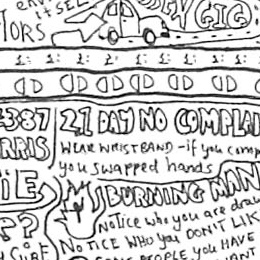 ITSELF
GIG
TORS
1: 1: 2: 2: 1: 1: 1: 1:
387 21 DAY NO COMPLAI
RRIS WEAR WRISTBAND - if you comp
you swapped hands
IE BURNING MAN
?? NoTice who you are draw
NOTICE WHO YOU DON'T LIKE
PEOPLE YOU HAVE
WANT